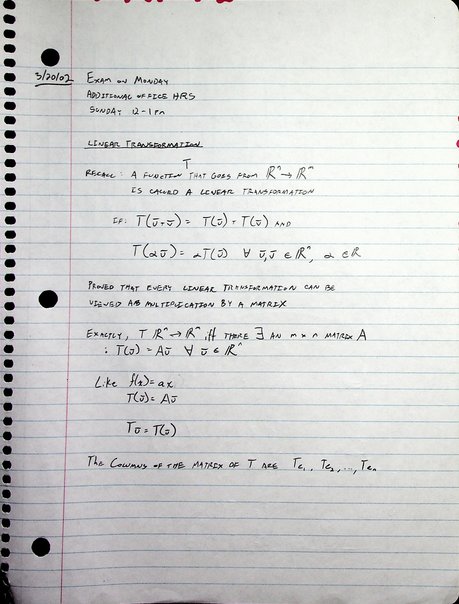 3/20/02 Exam on Monday
Additional office hrs
Sunday 12-1pm
Linear Transformation
Recall: A function T that goes from ℝⁿ → ℝᵐ
is called a linear transformation
if: T(ū+v̄) = T(ū) + T(v̄) and
T(αū) = αT(ū) ∀ ū,v̄ ∈ ℝⁿ, α ∈ ℝ
Proved that every linear transformation can be
viewed as multiplication by a matrix
Exactly, T ℝⁿ → ℝᵐ iff there ∃ an m x n matrix A
: T(v̄) = Av̄ ∀ v̄ ∈ ℝⁿ
Like f(x) = ax
T(v̄) = Av̄
Tv̄ = T(v̄)
The columns of the matrix of T are Te₁, Te₂, ..., Teₙ